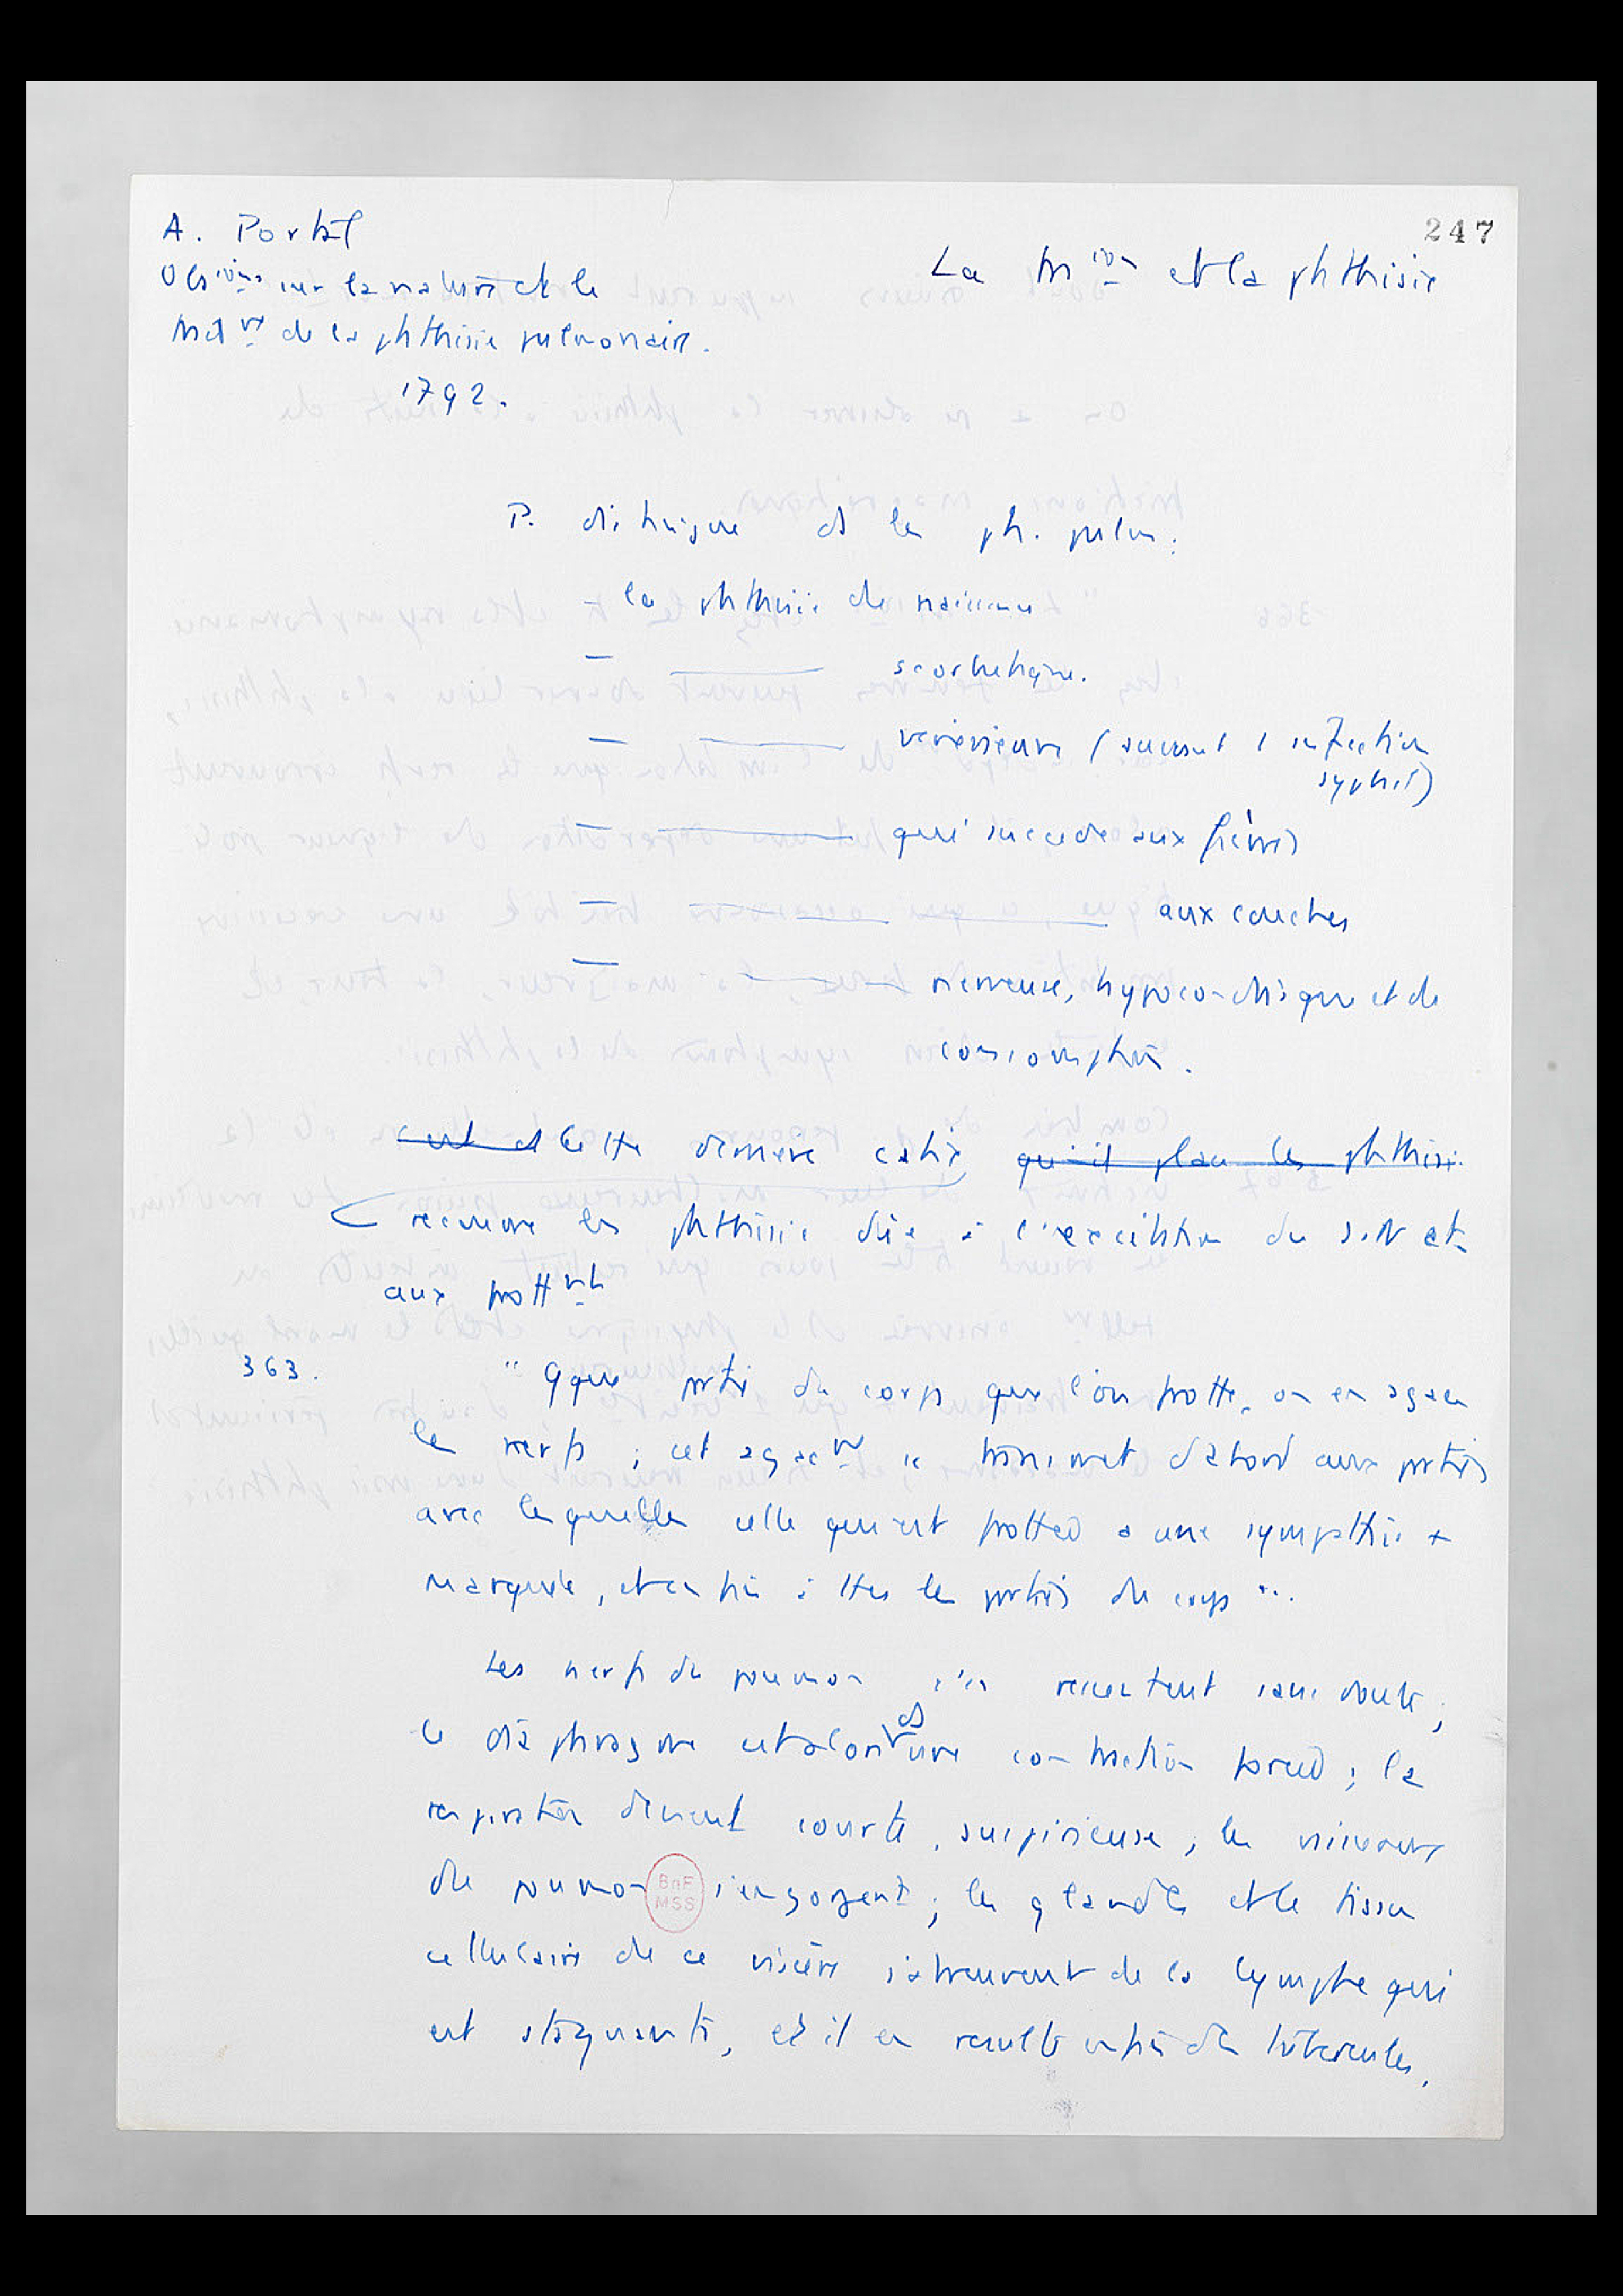 247
A. Portal
Obs ions sur la nature et le
trait nt de la phthisie pulmonaire.
1792.
La m ion et la phthisie
P. distingue ds les ph. pulm :
- la phthisie de naissance
— ——— scorbutique.
— ——— vénérienne (suivant l'infection
syphil)
— ——— qui succède aux fièvres
— ——— ——— aux couches
— ——— nerveuse, hypocondriaque et de
consomption.
c'est ds cette dernière catie qu'il place les phthisie.
recouvre les phthisie dûe à l'excitation du s. N et
aux frott nts
363.
" Qque partie du corps que l'on frotte, on en agace
les nerfs ; cet agac nt se transmet d'abord aux parties
avec lesquelles celle qui est frottée a une sympathie +
marquée, et enfin à ttes les parties du corps "..
Les nerfs du poumon s'en ressentent sans doute ;
le diaphragme est alors ds une contraction forcée ; la
respiration devient courte, suspirieuse ; les vaisseaux
du poumon s'engorgent ; les glandes et le tissu
cellulaire de ce viscère s'abreuvent de la lymphe qui
est stagnante, et il en resulte enfin des tubercules,
BnF
MSS